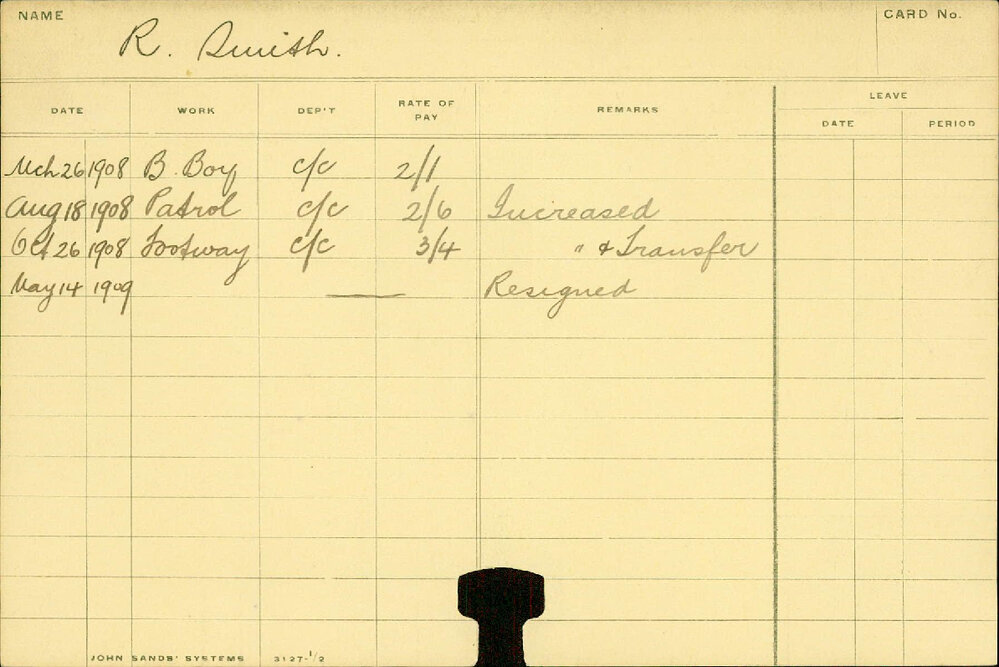 NAME
R. Smith.
CARD No.
DATE WORK DEP'T RATE OF PAY REMARKS LEAVE
DATE PERIOD
Mch 26 1908 B. Boy c/c 2/1
Aug 18 1908 Patrol c/c 2/6 Increased
Oct 26 1908 Footway c/c 3/4 " & Transfer
May 14 1909 — Resigned
JOHN SANDS' SYSTEMS 3127-1/2